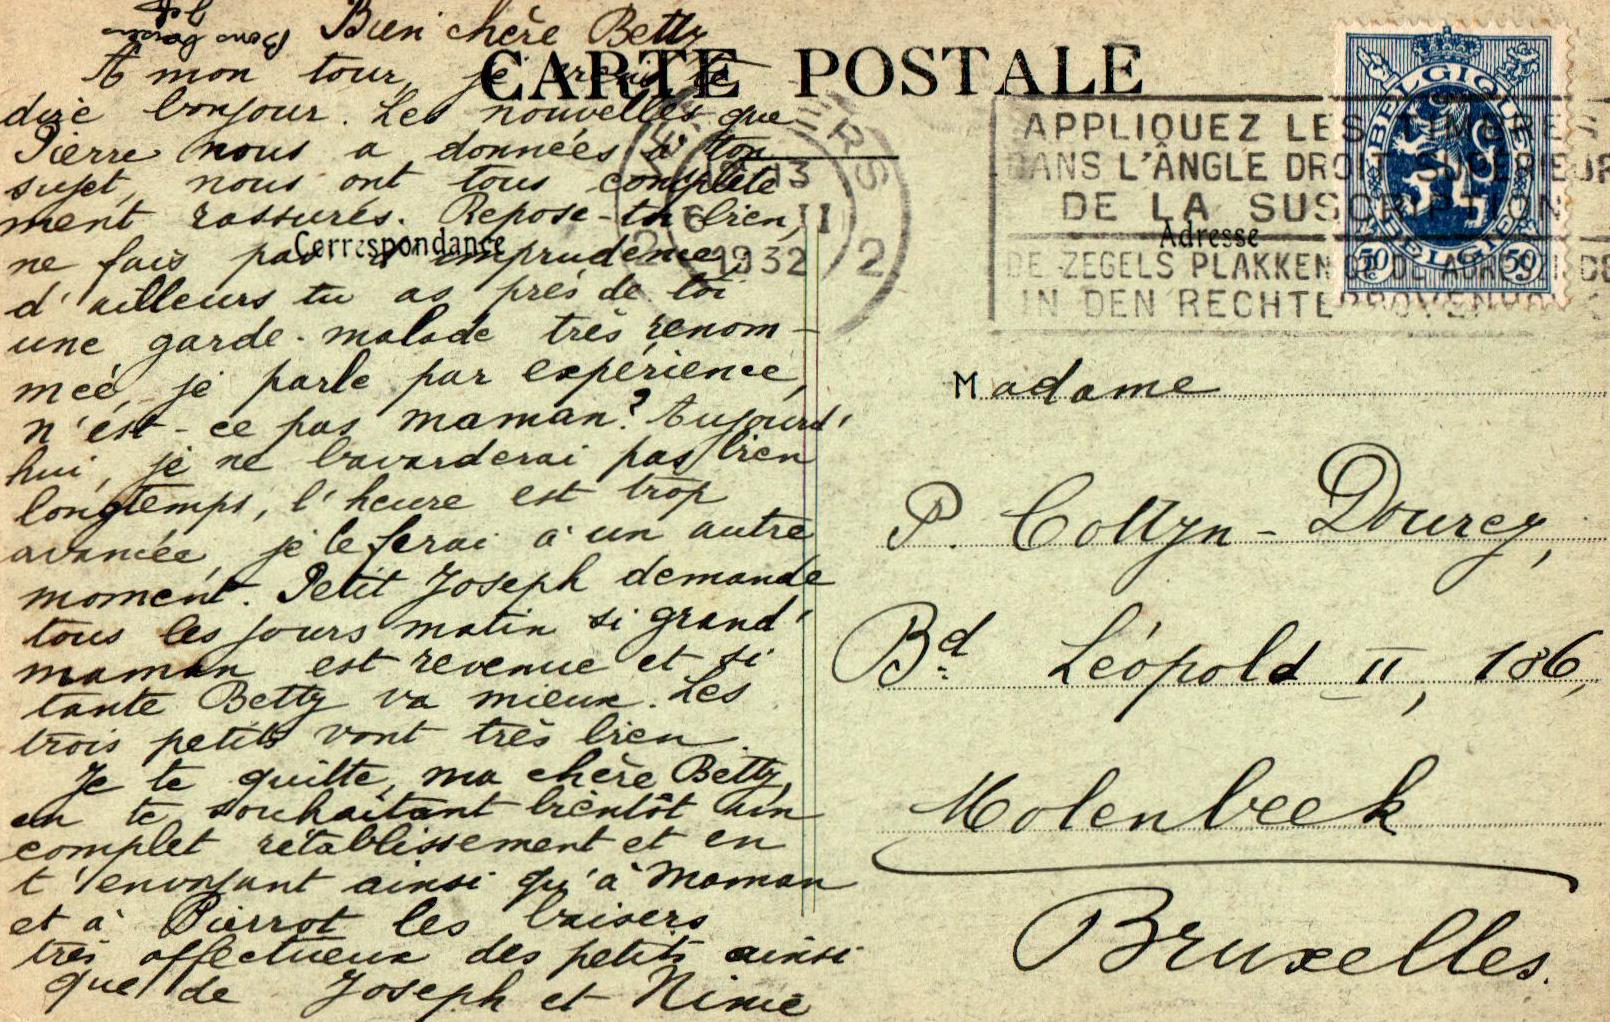 Bons baisers
Bien chère Betty
A mon tour, je viens te
dire bonjour. Les nouvelles que
Pierre nous a données à ton
sujet, nous ont tous complète
ment rassurés. Repose-toi bien,
ne fais pas d'imprudence,
d'ailleurs tu as près de toi
une garde-malade très renom-
meé, je parle par expérience,
n'est-ce pas maman? Aujourd'
hui, je ne bavarderai pas bien
longtemps, l'heure est trop
avancée, je le ferai à un autre
moment. Petit Joseph demande
tous les jours matin si grand'
maman est revenue et si
tante Betty va mieux. Les
trois petits vont très bien.
Je te quitte, ma chère Betty,
en te souhaitant bientôt un
complet rétablissement et en
t'envoyant ainsi qu'à Maman
et à Pierrot les baisers
très affectueux des petits ainsi
que de Joseph et Ninie
CARTE POSTALE
Correspondance
Adresse
13
6 II
1932
2 2
APPLIQUEZ LES TIMBRES
DANS L'ÂNGLE DROIT SUPÉRIEUR
DE LA SUSCRIPTION
DE ZEGELS PLAKKEN OP DE ADRESZIJDE
IN DEN RECHTERBOVENHOEK
BELGIQUE
BELGIË
50 50
Madame
P. Collyn-Dourcy,
Bd Léopold II, 186,
Molenbeek
Bruxelles.